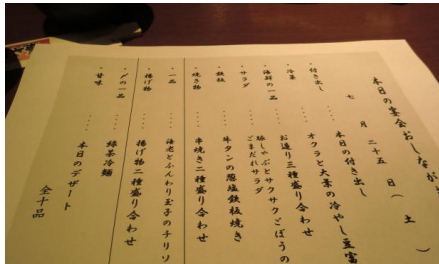 本日の宴会おしなが
七月二十五日(土)
・付き出し……本日の付き出し
・冷菜……オクラと大葉の冷やし豆富
・海鮮の一品……お造り三種盛り合わせ
・サラダ……豚しゃぶとサクサクごぼうの
ごまだれサラダ
・鉄板……牛タンの葱塩鉄板焼き
・焼き物……串焼き二種盛り合わせ
・一品……海老とふんわり玉子のチリソ
・揚げ物……揚げ物二種盛り合わせ
・〆の一品……緑茶冷麺
・甘味……本日のデザート
全十品